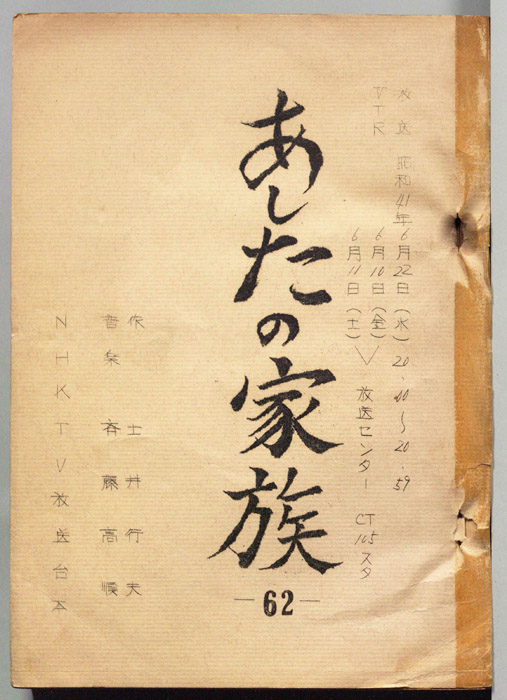 放送 昭和41年6月22日（水）20.00〜20.59
VTR 6月10日（金）
6月11日（土）＞放送センター CT105スタ
あしたの家族
－62－
作 土井行夫
音楽 斉藤高順
NHKTV放送台本